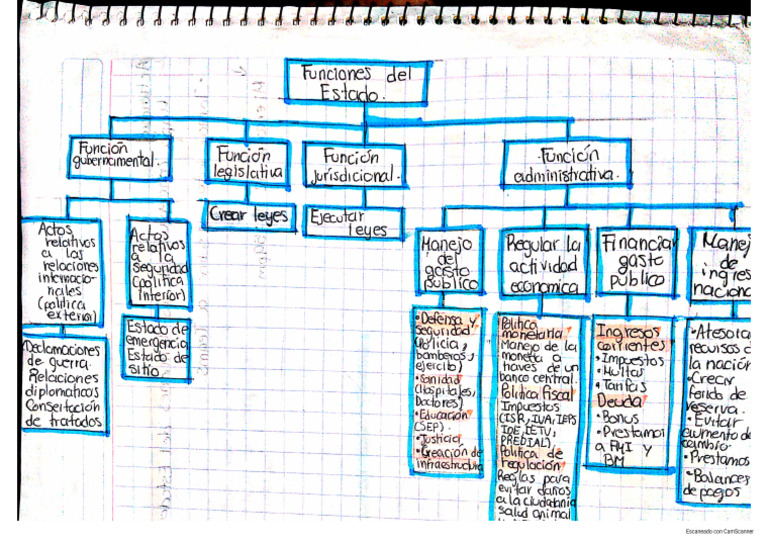 Funciones del
Estado.
Función
gubernamental.
Función
legislativa
Función
jurisdicional.
Función
administrativa.
Crear leyes
Ejecutar
leyes
Actos
relativos
a las
relaciones
internacio-
nales
(política
exterior)
Actos
relativos
a la
seguridad
(política
interior)
Manejo
del
gasto
público
Regular la
actividad
económica
Financiar
gasto
público
Manej
de
ingres
naciona
Declamaciones
de guerra.
Relaciones
diplomaticos
Consertación
de tratados
Estado de
emergencia
Estado de
sitio.
• Defensa y
seguridad
(Policía,
bomberos,
ejercito)
• Sanidad
(Hospitales,
Doctores)
• Educación
(SEP).
• Justicia
• Creación de
infraestructura
Política
monetaria.
Manejo de la
moneta a
traves de un
banco central.
Politica fiscal
Impuestos
(ISR, IVA, IEPS
IDE, IETU,
PREDIAL).
Politica de
regulación
Reglas para
evitar daños
a la ciudadania
salud animal
Ingresos
corrientes
• Impuestos
• Multas
• Tarifas
Deuda
• Bonus
• Prestamos
a FMI Y
BM
• Atesora
recursos d
la nación
• Crear
fondo de
reserva.
• Evitar
aumento de
cambio
• Prestamos
• Balances
de pagos
Escaneado con CamScanner